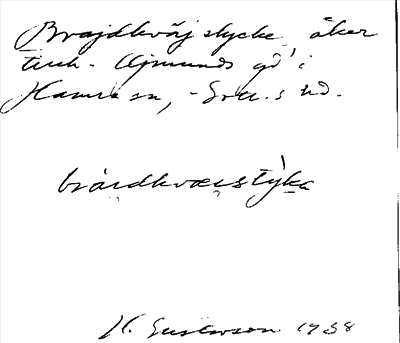 Brajdkväj stycke åker
tillh. Ajmunds gd i
Hamra sn, Gotl. s hd.
bràidkvæistỳka
H. Gustavson 1938